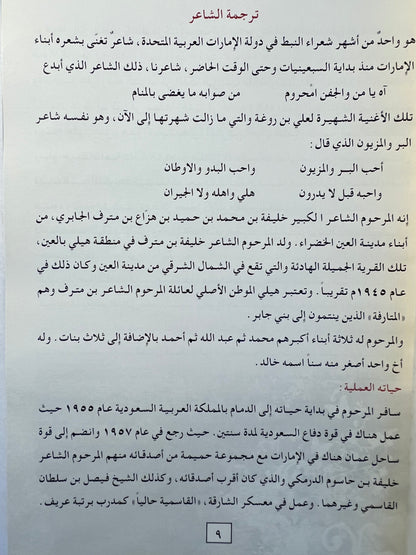 ترجمة الشاعر
هو واحدٌ من أشهر شعراء النبط في دولة الإمارات العربية المتحدة، شاعرٌ تغنَّى بشعره أبناء
الإمارات منذ بداية السبعينيات وحتى الوقت الحاضر، شاعرنا، ذلك الشاعر الذي أبدع
آه يا من والجفن امْحروم من صوابه ما يغضى بالمنام
تلك الأغنية الشهيرة لعلي بن روغة والتي ما زالت شهرتها إلى الآن، وهو نفسه شاعر
البر والمزيون الذي قال:
أحب البــر والمزيون واحب البدو والاوطان
واحبه قبل لا يدرون هلي واهله ولا الجيران
إنه المرحوم الشاعر الكبير خليفة بن محمد بن حميد بن هزاع بن مترف الجابري، من
أبناء مدينة العين الخضراء. ولد المرحوم الشاعر خليفة بن مترف في منطقة هيلي بالعين،
تلك القرية الجميلة الهادئة والتي تقع في الشمال الشرقي من مدينة العين وكان ذلك في
عام ١٩٤٥م تقريباً. وتعتبر هيلي الموطن الأصلي لعائلة المرحوم الشاعر بن مترف وهم
«المتارفة» الذين ينتمون إلى بني جابر.
والمرحوم له ثلاثة أبناء أكبرهم محمد ثم عبد الله ثم أحمد بالإضافة إلى ثلاث بنات. وله
أخ واحد أصغر منه سناً اسمه خالد.
حياته العملية:
سافر المرحوم في بداية حياته إلى الدمام بالمملكة العربية السعودية عام ١٩٥٥ حيث
عمل هناك في قوة دفاع السعودية لمدة سنتين. حيث رجع في عام ١٩٥٧ وانضم إلى قوة
ساحل عمان هناك في الإمارات مع مجموعة حميمة من أصدقائه منهم المرحوم الشاعر
خليفة بن حاسوم الدرمكي والذي كان أقرب أصدقائه، وكذلك الشيخ فيصل بن سلطان
القاسمي وغيرهما. وعمل في معسكر الشارقة، «القاسمية حالياً» كمدرب برتبة عريف.
٩